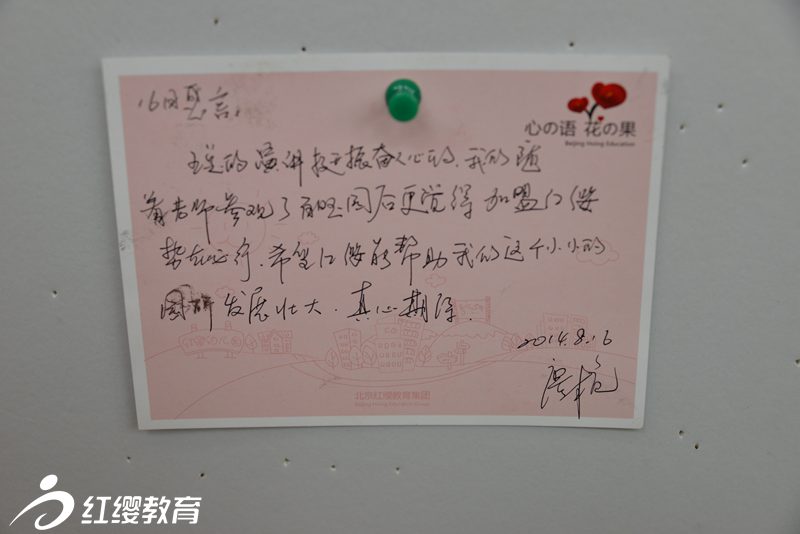 心の语 花の果
Beijing Hoing Education
16日感言:
王总的演讲挺振奋人心的,我们随
着老师参观了百旺园后更觉得加盟红缨
势在必行.希望红缨能帮助我们这个小小的
园所发展壮大.真心期待.
2014.8.16
北京红缨教育集团
Beijing Hoing Education Group
红缨教育